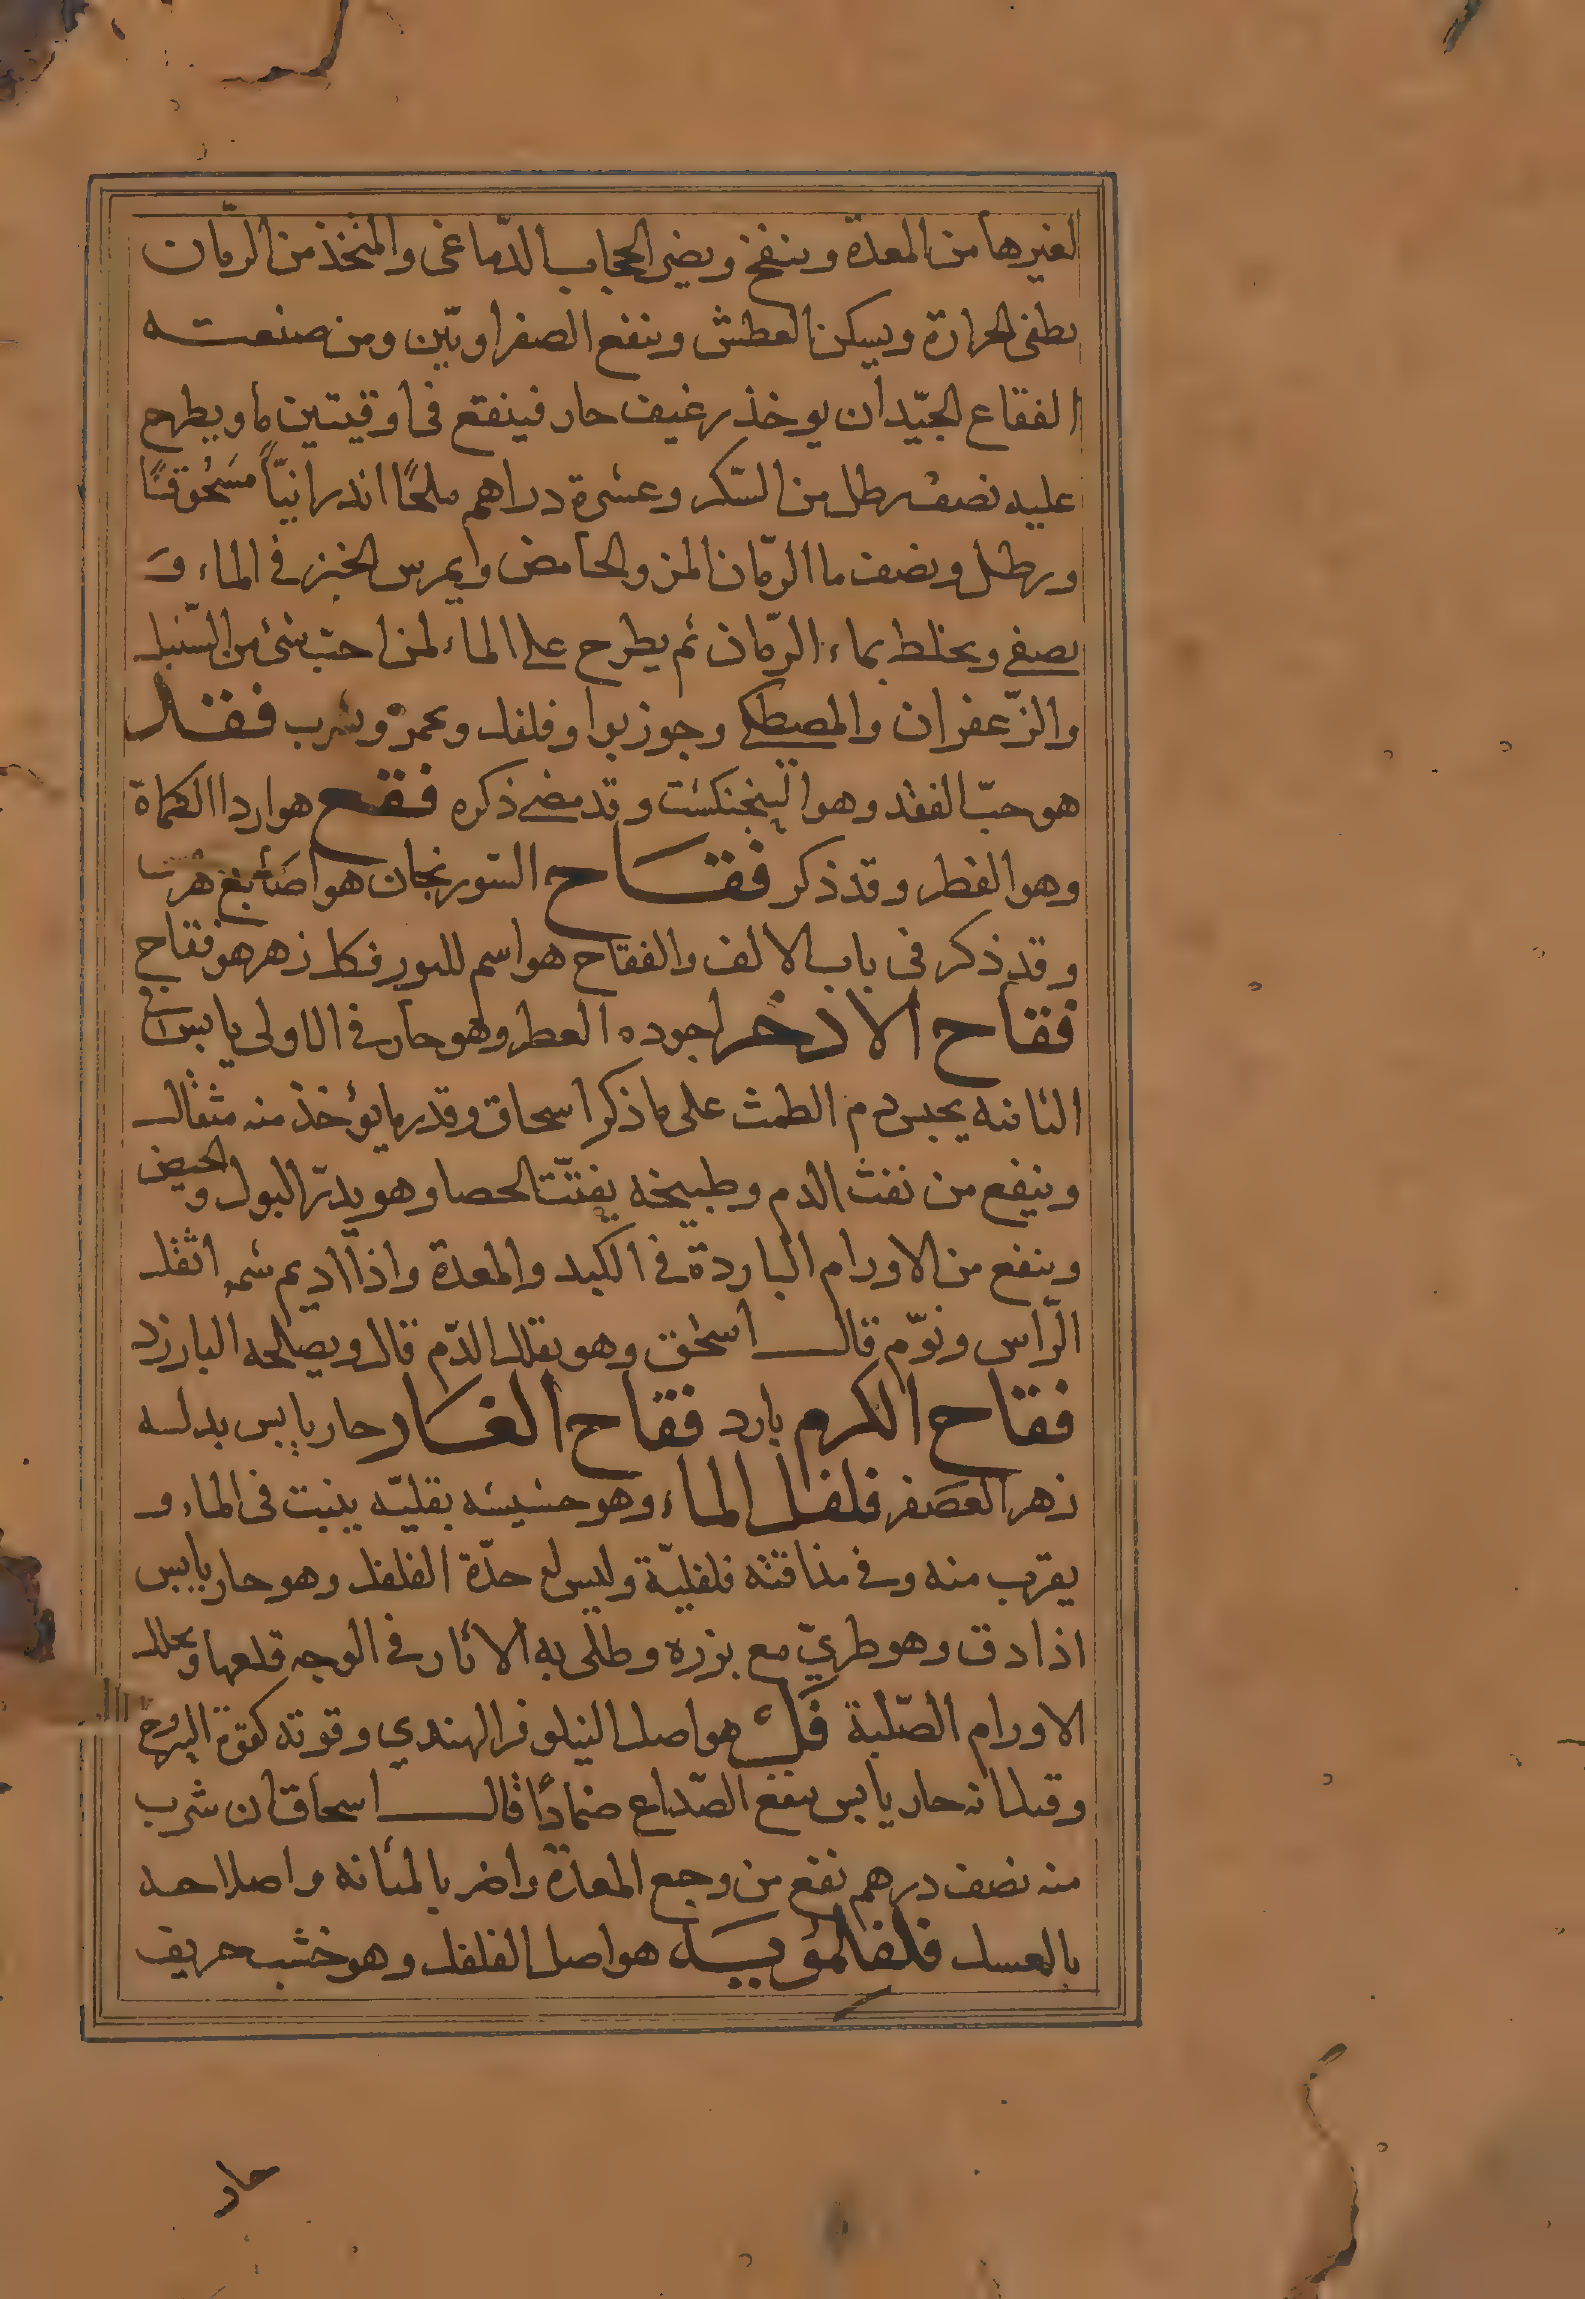 لغيرها من المعدة وينفخ ويضر الحجاب الدّماغى والمتخذ من الرمّان
يطفى الحرارة ويسكن العطش وينفع الصفراويّين ومن صنعته
الفقاع الجيّد ان يوخذ رغيف حار فينقع فى اوقيتين ما ويطرح
عليه نصف رطل من السّكر وعشرة دراهم ملحًا اندرانيّاً مسحوقًا
ورطل ونصف ما الرمّان المز والحامض وايمرس الخبز فى الماء و
يصفى ويخلط بماء الرمّان ثم يطرح على الماء لمن احب شئ من السّنبل
والزّعفران والمصطكى وجوزبوا وفلفل ويخمر ويشرب فقد
هو حبّ الفقد وهو البنجنكشت وقد مضى ذكره فقع هو اردا الكماة
وهو الفطر وقد ذكر فقاح السّورنجان هو اصابع هرمس
وقد ذكر فى باب الالف والفقاح هو اسم للنور فكل زهر هو فقاح
فقاح الاذخر اجوده العطر وهو حار فى الاولى يابس فى
الثانيه يحبس دم الطمث على ما ذكر اسحاق وقدر ما يؤخذ منه مثقال
وينفع من نفث الدم وطبيخه يفتّت الحصا وهو يدرّ البول والحيض
وينفع من الاورام الباردة فى الكبد والمعدة واذا اديم شمه اثقل
الرّاس ونوّم قال اسحٰق وهو يقلل الدّم قال ويصلحه البارزد
فقاح الكرم بارد فقاح الغار حار يابس بدلسه
زهر العصفر فلفل الماء وهو حشيشه بقليّه ينبت فى الماء و
يقرب منه وفى مذاقته فلفليّة وليس له حدّة الفلفل وهو حار يابس
اذا دق وهو طريّ مع بزره وطلى به الاثار فى الوجه قلعها ويحلل
الاورام الصّلبة فل هو اصل النيلوفر الهندي وقوته كقوة اليبروح
وقيل انه حار يابس ينفع الصّداع ضمادًا قال اسحاق ان شرب
منه نصف درهم نفع من وجع المعدة واضر بالمثانه واصلاحه
بالعسل فلفلمويه هو اصل الفلفل وهو خشب حريف
حار